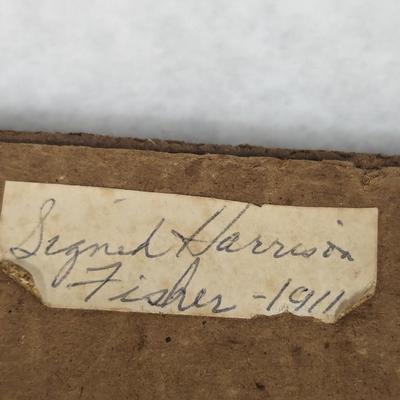 Signed Harrison
Fisher - 1911